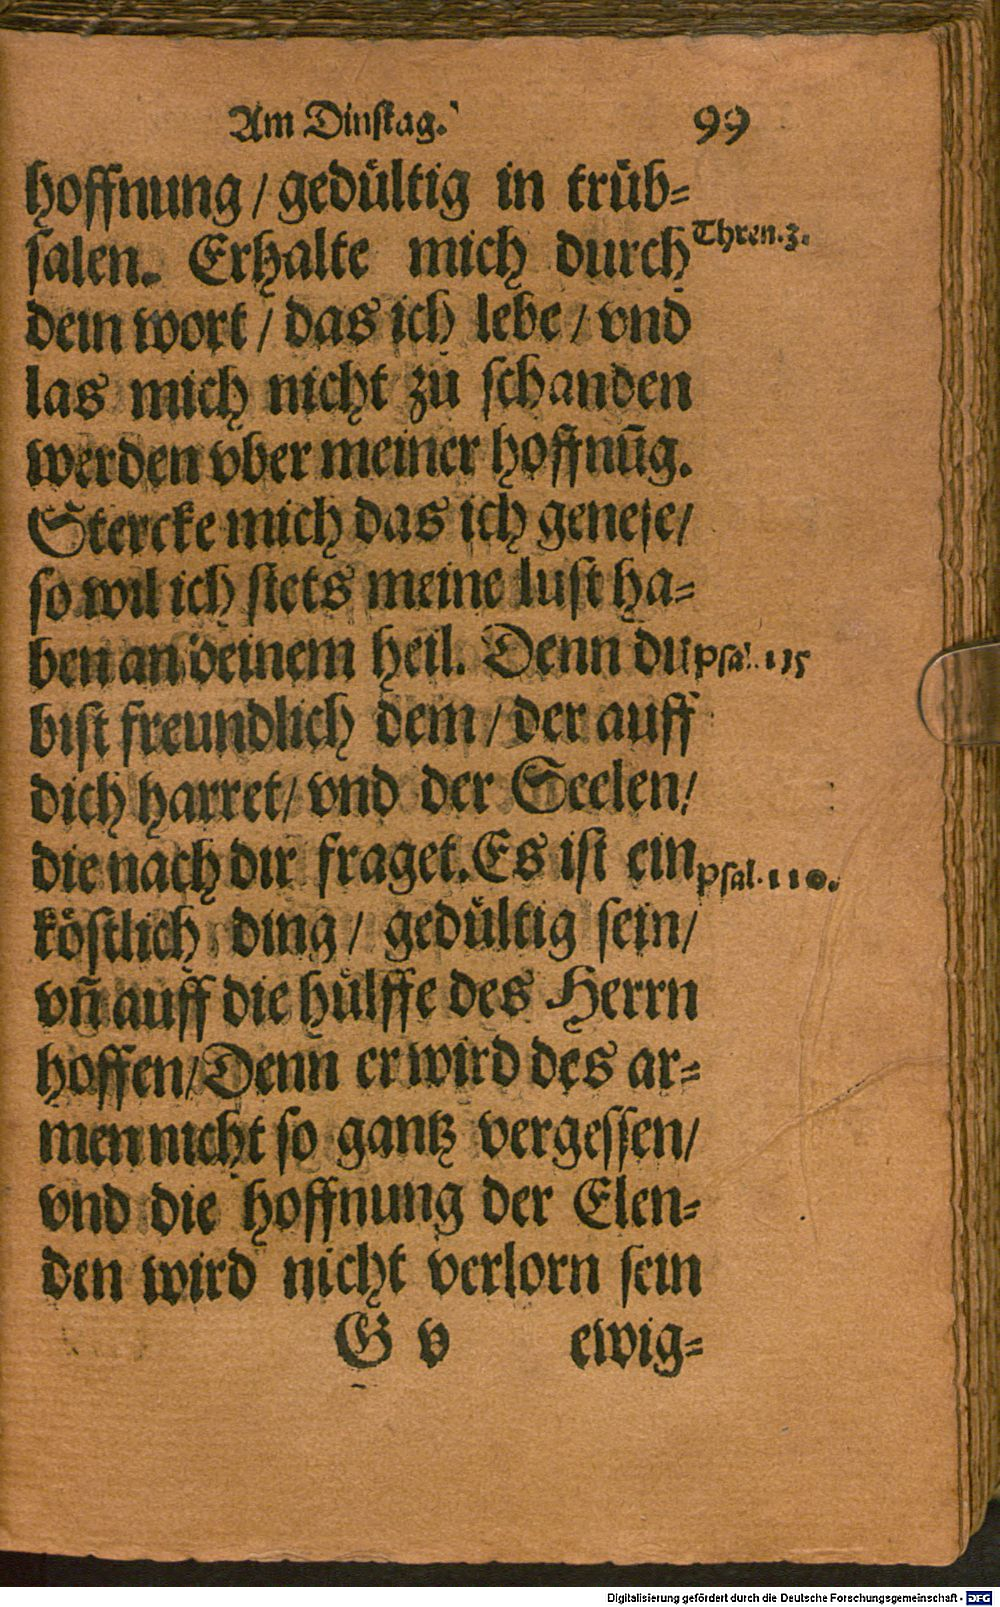 Am Dinstag. 99
hoffnung / gedültig in trüb=
salen. Erhalte mich durch
Thren. 3.
dein wort / das ich lebe / vnd
las mich nicht zu schanden
werden vber meiner hoffnūg.
Stercke mich das ich genese /
so wil ich stets meine lust ha=
ben an deinem heil. Denn du
Psal. 115
bist freundlich dem / der auff
dich harret / vnd der Seelen /
die nach dir fraget. Es ist ein
Psal. 110.
köstlich ding / gedültig sein /
vn̄ auff die hülffe des Herrn
hoffen / Denn er wird des ar=
men nicht so gantz vergessen /
vnd die hoffnung der Elen=
den wird nicht verlorn sein
G v ewig=
Digitalisierung gefördert durch die Deutsche Forschungsgemeinschaft - DFG